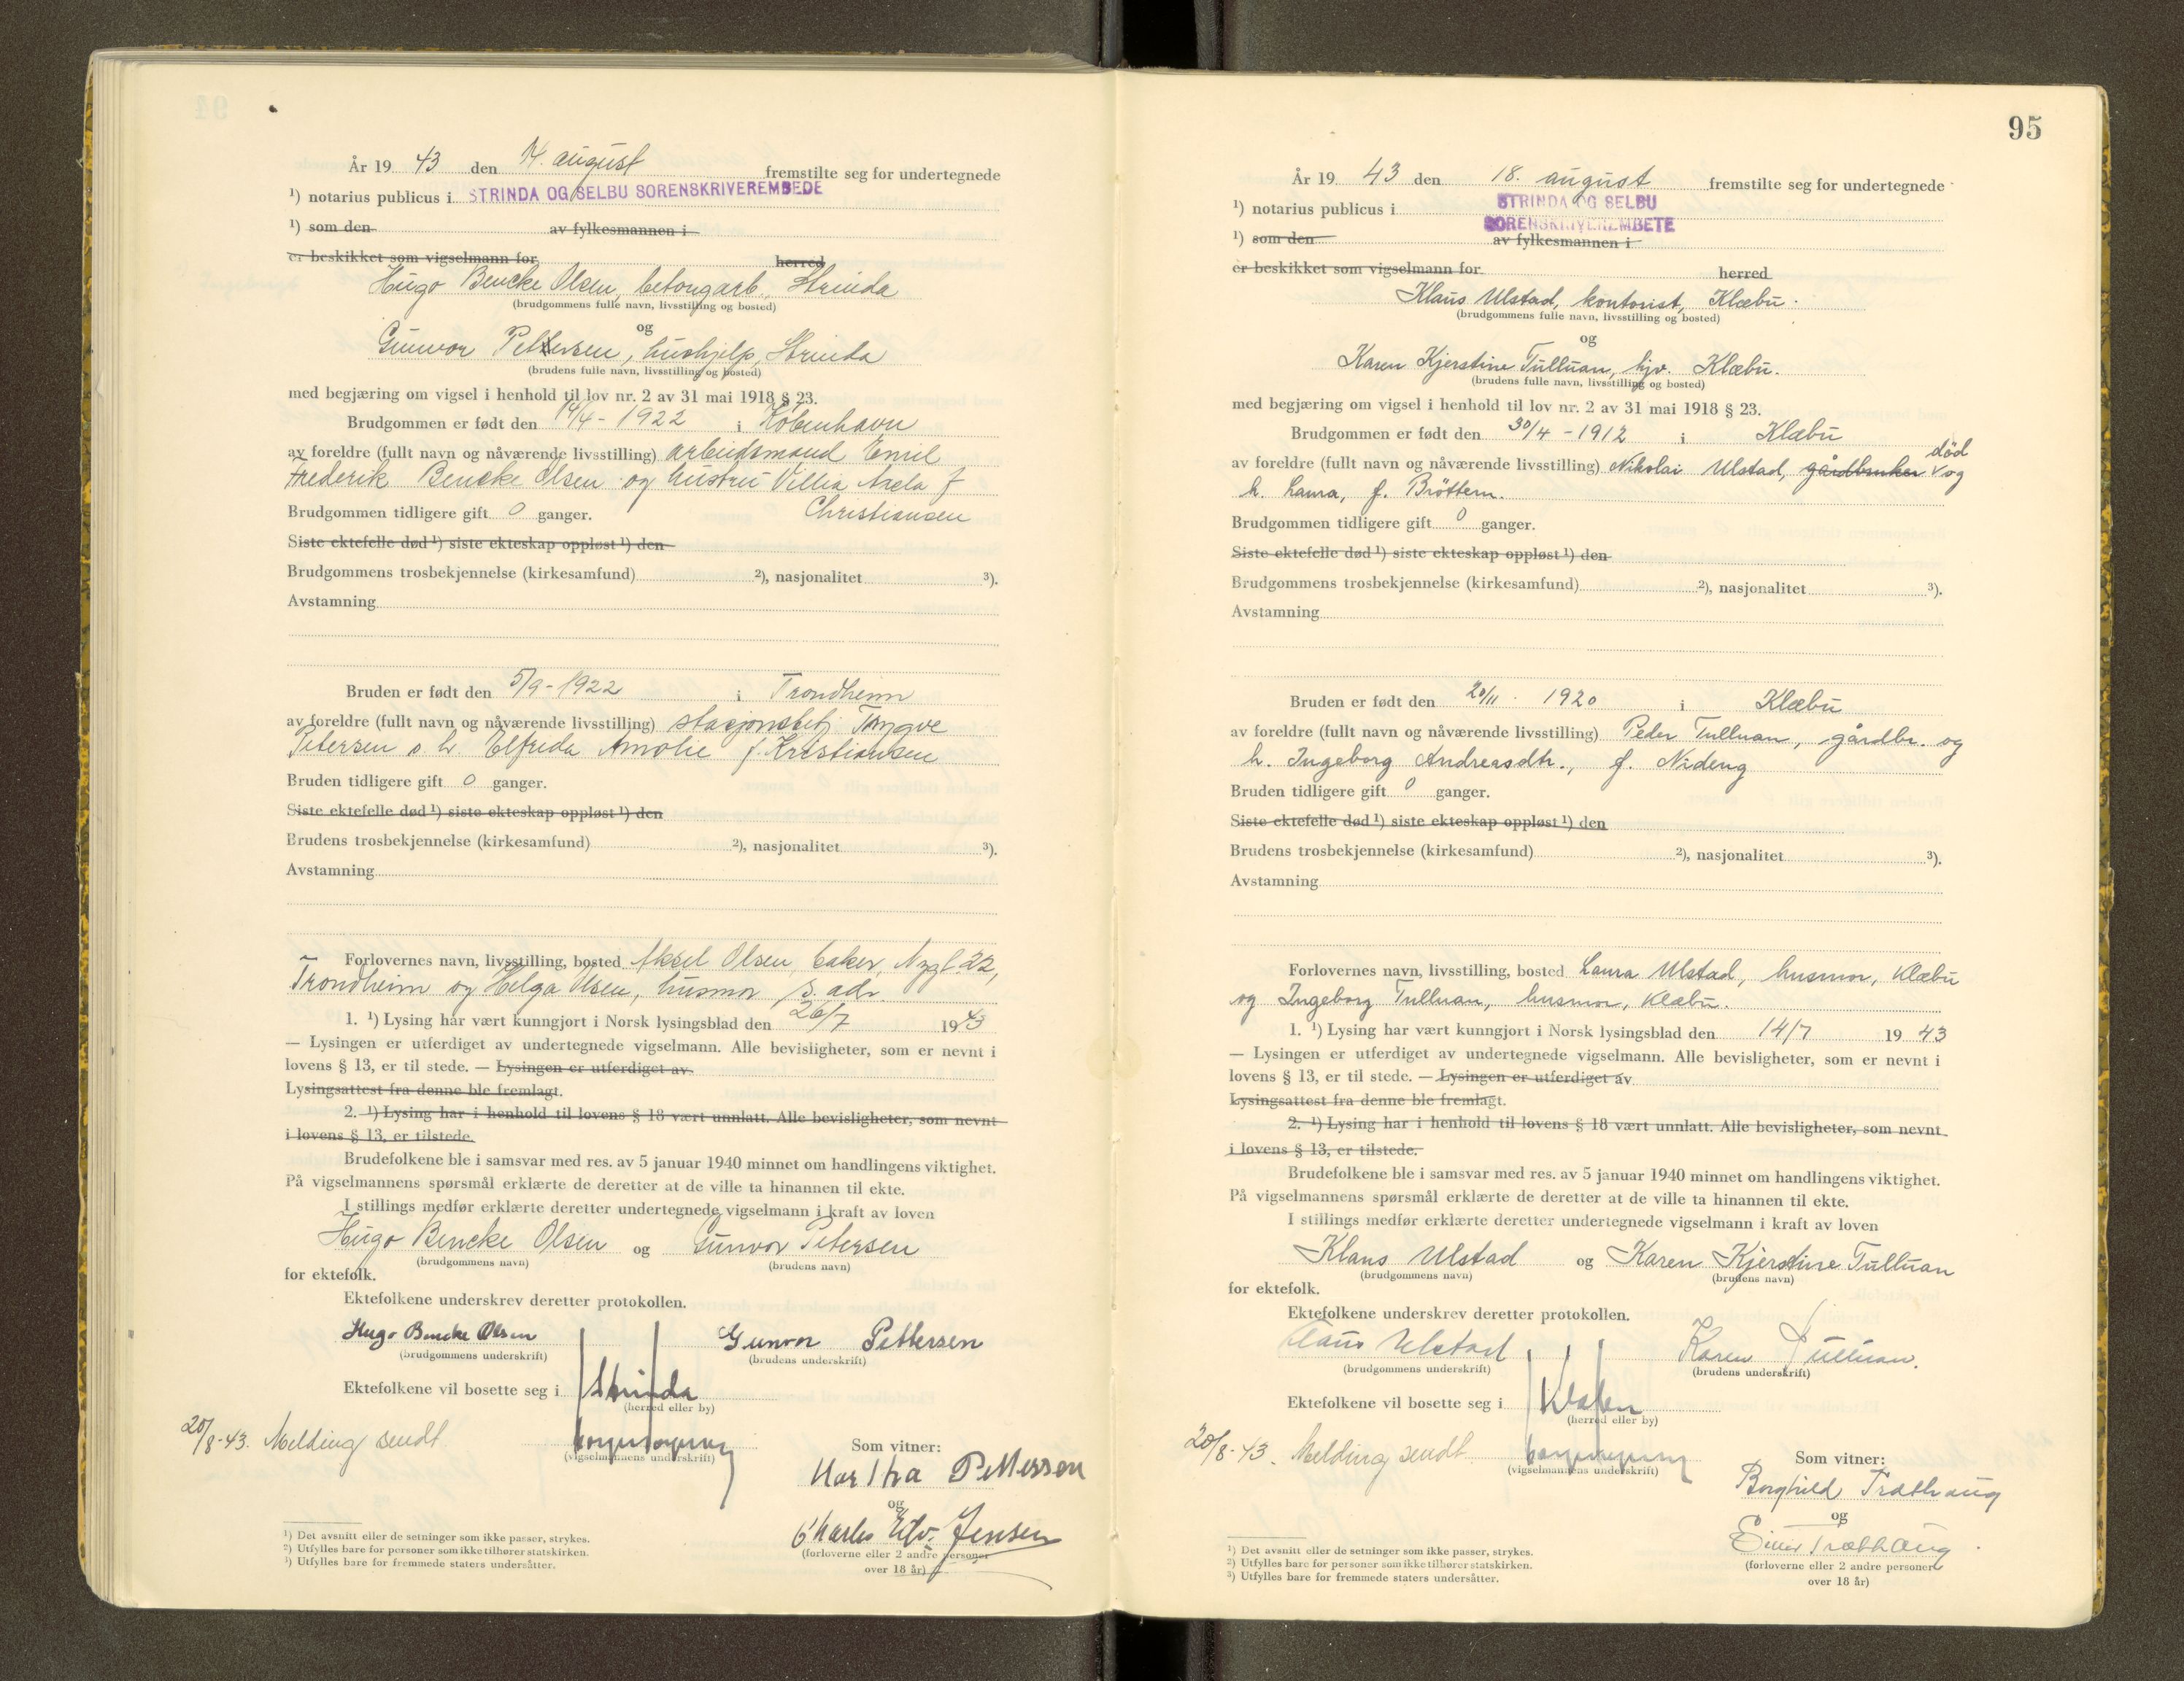 År 19 43 den 14. august fremstilte seg for undertegnede
¹) notarius publicus i STRINDA OG SELBU SORENSKRIVEREMBEDE
¹) som den av fylkesmannen i
er beskikket som vigselmann for herred
Hugo Bencke Olsen, betongarb., Strinda
(brudgommens fulle navn, livsstilling og bosted)
og
Gunvor Pettersen, hushjelp, Strinda
(brudens fulle navn, livsstilling og bosted)
med begjæring om vigsel i henhold til lov nr. 2 av 31 mai 1918 § 23.
Brudgommen er født den 14/4 - 1922 i København
av foreldre (fullt navn og nåværende livsstilling) arbeidsmand Emil
Frederik Bencke Olsen og hustru Villia Axela f
Christiansen
Brudgommen tidligere gift 0 ganger.
Siste ektefelle død ¹) siste ekteskap oppløst ¹) den
Brudgommens trosbekjennelse (kirkesamfund) ²), nasjonalitet ³).
Avstamning
Bruden er født den 5/9 - 1922 i Trondheim
av foreldre (fullt navn og nåværende livsstilling) stasjonsbetj. Tryggve
Petersen o. h. Elfreda Amolie f. Kristiansen
Bruden tidligere gift 0 ganger.
Siste ektefelle død ¹) siste ekteskap oppløst ¹) den
Brudens trosbekjennelse (kirkesamfund) ²), nasjonalitet ³).
Avstamning
Forlovernes navn, livsstilling, bosted Aksel Olsen, baker, 22,
Trondheim og Helga Olsen, husmor s. adr.
1. ¹) Lysing har vært kunngjort i Norsk lysingsblad den 26/7 19 43
— Lysingen er utferdiget av undertegnede vigselmann. Alle bevisligheter, som er nevnt i
lovens § 13, er til stede. — Lysingen er utferdiget av
Lysingsattest fra denne ble fremlagt.
2. ¹) Lysing har i henhold til lovens § 18 vært unnlatt. Alle bevisligheter, som nevnt
i lovens § 13, er tilstede.
Brudefolkene ble i samsvar med res. av 5 januar 1940 minnet om handlingens viktighet.
På vigselmannens spørsmål erklærte de deretter at de ville ta hinannen til ekte.
I stillings medfør erklærte deretter undertegnede vigselmann i kraft av loven
Hugo Bencke Olsen og Gunvor Petersen
(brudgommens navn) (brudens navn)
for ektefolk.
Ektefolkene underskrev deretter protokollen.
Hugo Bencke Olsen Gunvor Pettersen
(brudgommens underskrift) (brudens underskrift)
Ektefolkene vil bosette seg i Strinda
(herred eller by)
20/8-43. Melding sendt
(vigselmannens underskrift)
Som vitner:
Martha Pettersen
og
Charles Edv. Jensen
(forloverne eller 2 andre personer
over 18 år)
¹) Det avsnitt eller de setninger som ikke passer, strykes.
²) Utfylles bare for personer som ikke tilhører statskirken.
³) Utfylles bare for fremmede staters undersåtter.
95
År 19 43 den 18. august fremstilte seg for undertegnede
¹) notarius publicus i STRINDA OG SELBU
SORENSKRIVEREMBETE
¹) som den av fylkesmannen i
er beskikket som vigselmann for herred
Klaus Ulstad, kontorist, Klæbu.
(brudgommens fulle navn, livsstilling og bosted)
og
Karen Kjerstine Tulluan, hjv. Klæbu.
(brudens fulle navn, livsstilling og bosted)
med begjæring om vigsel i henhold til lov nr. 2 av 31 mai 1918 § 23.
Brudgommen er født den 30/4 - 1912 i Klæbu
død
av foreldre (fullt navn og nåværende livsstilling) Nikolai Ulstad, gårdbruker og
h. Laura, f. Bröttem.
Brudgommen tidligere gift 0 ganger.
Siste ektefelle død ¹) siste ekteskap oppløst ¹) den
Brudgommens trosbekjennelse (kirkesamfund) ²), nasjonalitet ³).
Avstamning
Bruden er født den 20/11 . 1920 i Klæbu
av foreldre (fullt navn og nåværende livsstilling) Peder Tulluan, gårdbr. og
h. Ingeborg Andreasdtr., f. Nideng
Bruden tidligere gift 0 ganger.
Siste ektefelle død ¹) siste ekteskap oppløst ¹) den
Brudens trosbekjennelse (kirkesamfund) ²), nasjonalitet ³).
Avstamning
Forlovernes navn, livsstilling, bosted Laura Ulstad, husmor, Klæbu
og Ingeborg Tulluan, husmor, Klæbu.
1. ¹) Lysing har vært kunngjort i Norsk lysingsblad den 14/7 19 43
— Lysingen er utferdiget av undertegnede vigselmann. Alle bevisligheter, som er nevnt i
lovens § 13, er til stede. — Lysingen er utferdiget av
Lysingsattest fra denne ble fremlagt.
2. ¹) Lysing har i henhold til lovens § 18 vært unnlatt. Alle bevisligheter, som nevnt
i lovens § 13, er tilstede.
Brudefolkene ble i samsvar med res. av 5 januar 1940 minnet om handlingens viktighet.
På vigselmannens spørsmål erklærte de deretter at de ville ta hinannen til ekte.
I stillings medfør erklærte deretter undertegnede vigselmann i kraft av loven
Klaus Ulstad og Karen Kjerstine Tulluan
(brudgommens navn) (brudens navn)
for ektefolk.
Ektefolkene underskrev deretter protokollen.
Claus Ulstad Karen Tulluan.
(brudgommens underskrift) (brudens underskrift)
Ektefolkene vil bosette seg i Klæbu
(herred eller by)
20/8-43. Melding sendt
(vigselmannens underskrift)
Som vitner:
Borghild Træthaug
og
Einar Trætthaug
(forloverne eller 2 andre personer
over 18 år)
¹) Det avsnitt eller de setninger som ikke passer, strykes.
²) Utfylles bare for personer som ikke tilhører statskirken.
³) Utfylles bare for fremmede staters undersåtter.